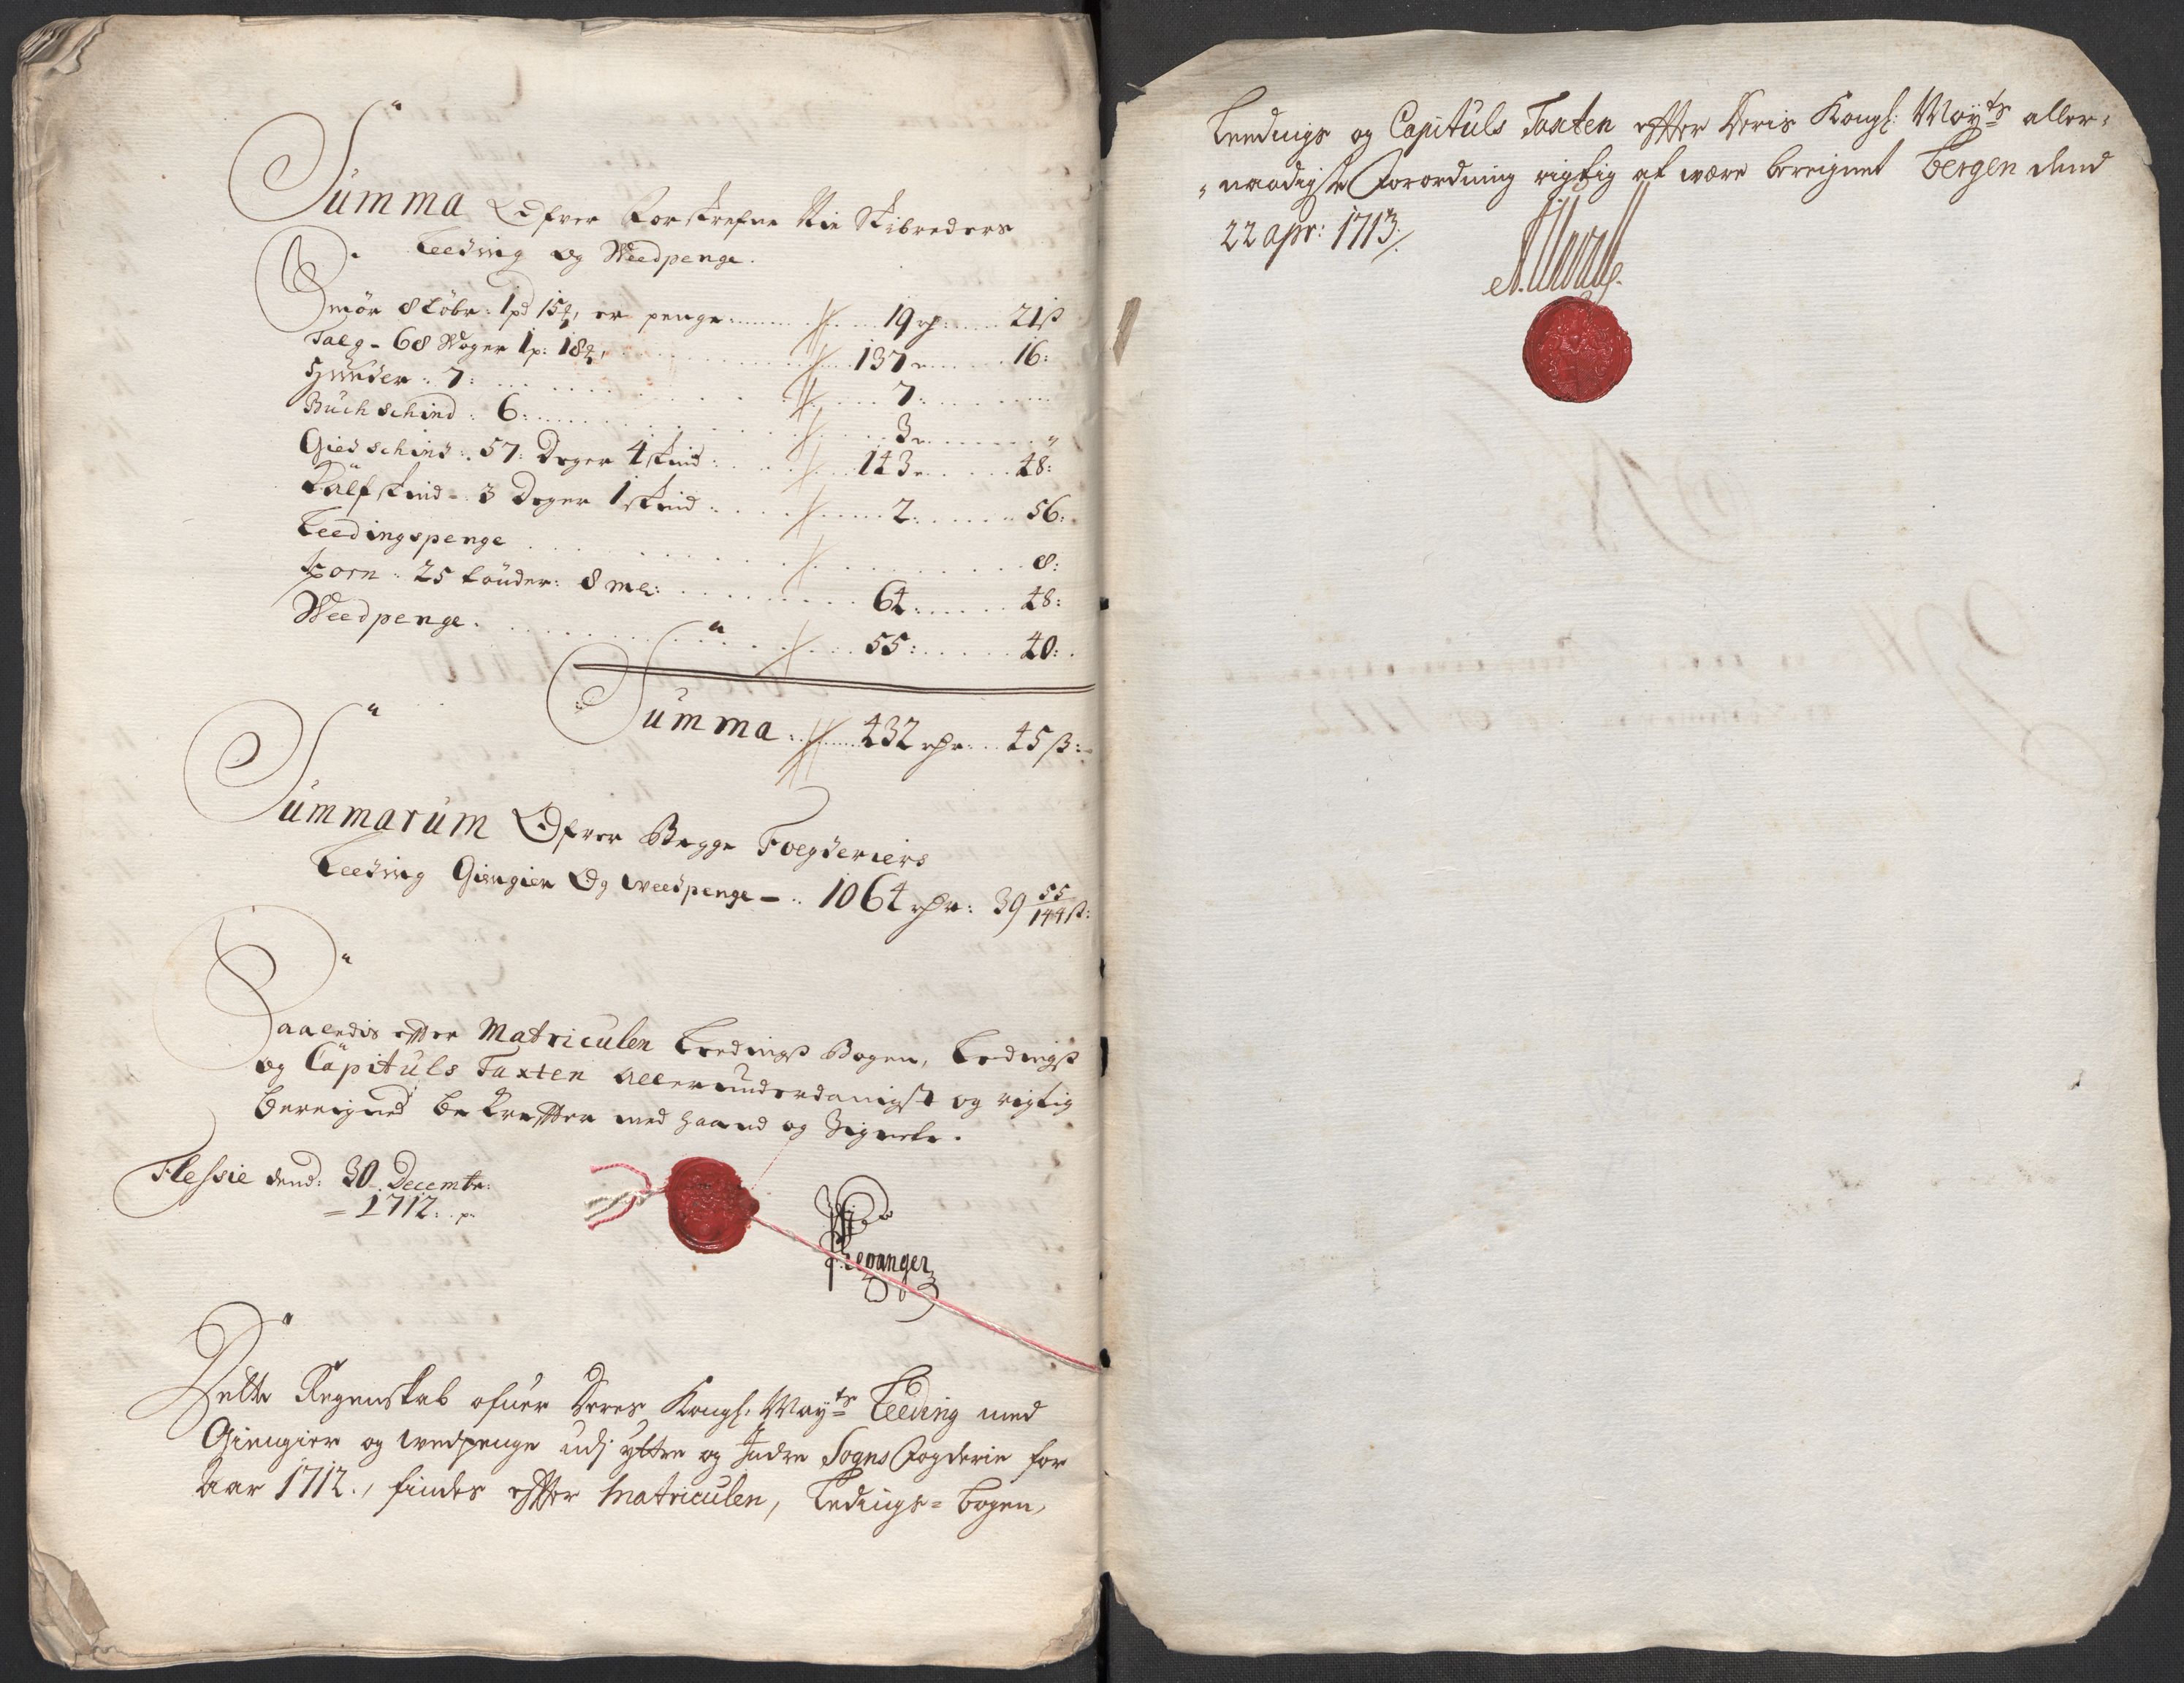 Summa Ofver Forskrefne Nie Skibreders
Leeding og Weedpenge.
Smör 8 Löbr: 1pd 15 , er penge 19 rdr 21 ß
Talg - 68 Woger 1p: 18 , 137 16:
Huuder : 7: 7:
Buchschind : 6: 3 "
Giedschind : 57: Deger 4 skind : 143 48:
Kalfskind - 3 Deger 1 skind : 2: 56:
Leedingspenge 8:
Korn : 25 tönder: 8 mel: 64: 48:
Weedpenge. 55: 40:
Summa 432 rdr 45 ß:
Summarum Ofver Begge Foegderiers
Leeding Giengier Og weedpenge - 1064 rdr: 39 55/144 ß:
Saaledis effter Matriculen Leedingß Bogen, Ledingß
og Capituls Taxten allerunderdanigst og rigtig
bereigned bekreffter med haand og Signete.
Flessie dend: 30 Decembr:
1712:
Detta Regenskab ofuer Deres Kongl: Mayts Leeding med
Giengier og wedpenge udj yttre og Indre Sogns Fogderie for
Aar 1712., findes effter Matriculen, Ledings=bogen,
Leedings og Capituls Taxten effter Deris Kongl: Mayts aller=
naadigste Forordning rigtig at være bereignet Bergen dend
22 apr: 1713:/